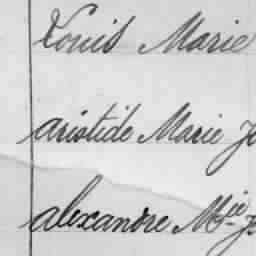 Louis Marie
aristide Marie J
alexandre Mie J